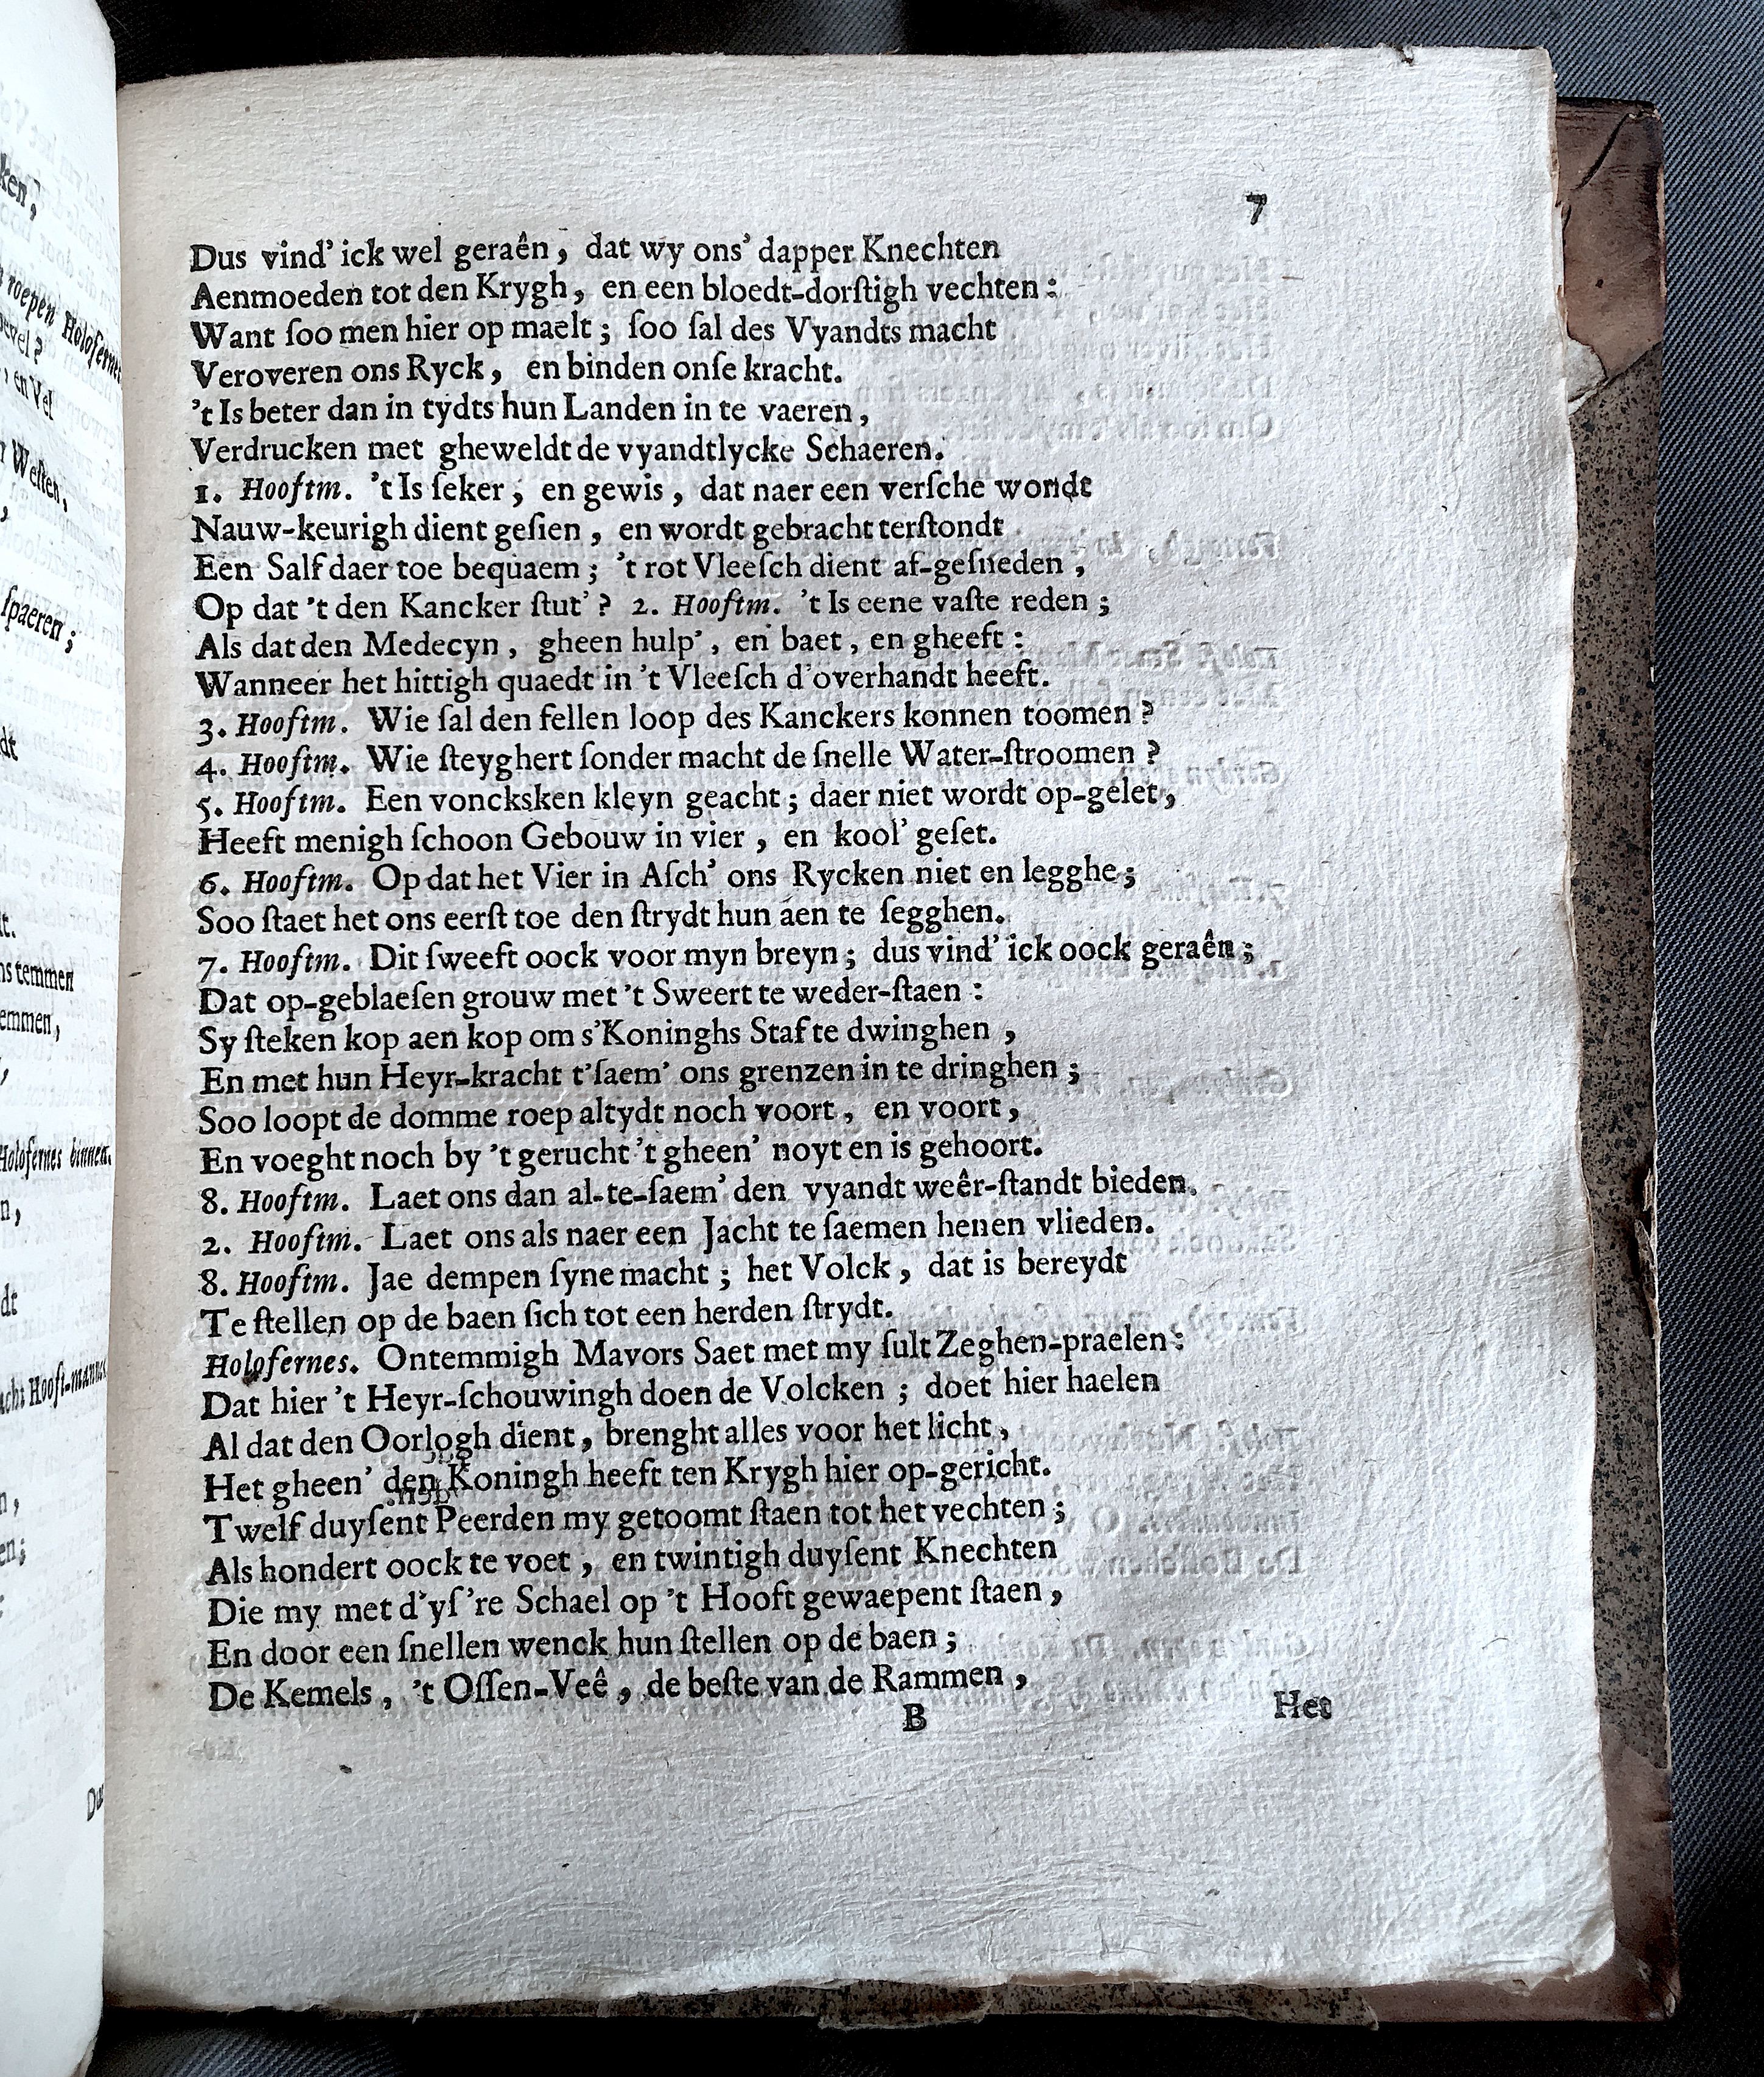 7
Dus vind' ick wel geraên, dat wy ons' dapper Knechten
Aenmoeden tot den Krygh, en een bloedt-dorſtigh vechten:
Want ſoo men hier op maelt; ſoo ſal des Vyandts macht
Veroveren ons Ryck, en binden onſe kracht.
't Is beter dan in tydts hun Landen in te vaeren,
Verdrucken met gheweldt de vyandtlycke Schaeren.
1. Hooftm. 't Is ſeker, en gewis, dat naer een verſche wondt
Nauw-keurigh dient geſien, en wordt gebracht terſtondt
Een Salf daer toe bequaem; 't rot Vleeſch dient af-geſneden,
Op dat 't den Kancker ſtut'? 2. Hooftm. 't Is eene vaſte reden;
Als dat den Medecyn, gheen hulp', en baet, en gheeft:
Wanneer het hittigh quaedt in 't Vleeſch d'overhandt heeft.
3. Hooftm. Wie ſal den fellen loop des Kanckers konnen toomen?
4. Hooftm. Wie ſteyghert ſonder macht de ſnelle Water-ſtroomen?
5. Hooftm. Een voncksken kleyn geacht; daer niet wordt op-gelet,
Heeft menigh ſchoon Gebouw in vier, en kool' geſet.
6. Hooftm. Op dat het Vier in Aſch' ons Rycken niet en legghe;
Soo ſtaet het ons eerſt toe den ſtrydt hun aen te ſegghen.
7. Hooftm. Dit ſweeft oock voor myn breyn; dus vind' ick oock geraên;
Dat op-geblaeſen grouw met 't Sweert te weder-ſtaen:
Sy ſteken kop aen kop om s'Koninghs Staf te dwinghen,
En met hun Heyr-kracht t'ſaem' ons grenzen in te dringhen;
Soo loopt de domme roep altydt noch voort, en voort,
En voeght noch by 't gerucht 't gheen' noyt en is gehoort.
8. Hooftm. Laet ons dan al-te-ſaem' den vyandt weêr-ſtandt bieden.
2. Hooftm. Laet ons als naer een Jacht te ſaemen henen vlieden.
8. Hooftm. Jae dempen ſyne macht; het Volck, dat is bereydt
Te ſtellen op de baen ſich tot een herden ſtrydt.
Holofernes. Ontemmigh Mavors Saet met my ſult Zeghen-praelen:
Dat hier 't Heyr-ſchouwingh doen de Volcken; doet hier haelen
Al dat den Oorlogh dient, brenght alles voor het licht,
Het gheen' den Koningh heeft ten Krygh hier op-gericht.
Twelf duyſent Peerden my getoomt ſtaen tot het vechten;
Als hondert oock te voet, en twintigh duyſent Knechten
Die my met d'yſ're Schael op 't Hooft gewaepent ſtaen,
En door een ſnellen wenck hun ſtellen op de baen;
De Kemels, 't Oſſen-Veê, de beſte van de Rammen,
B Het